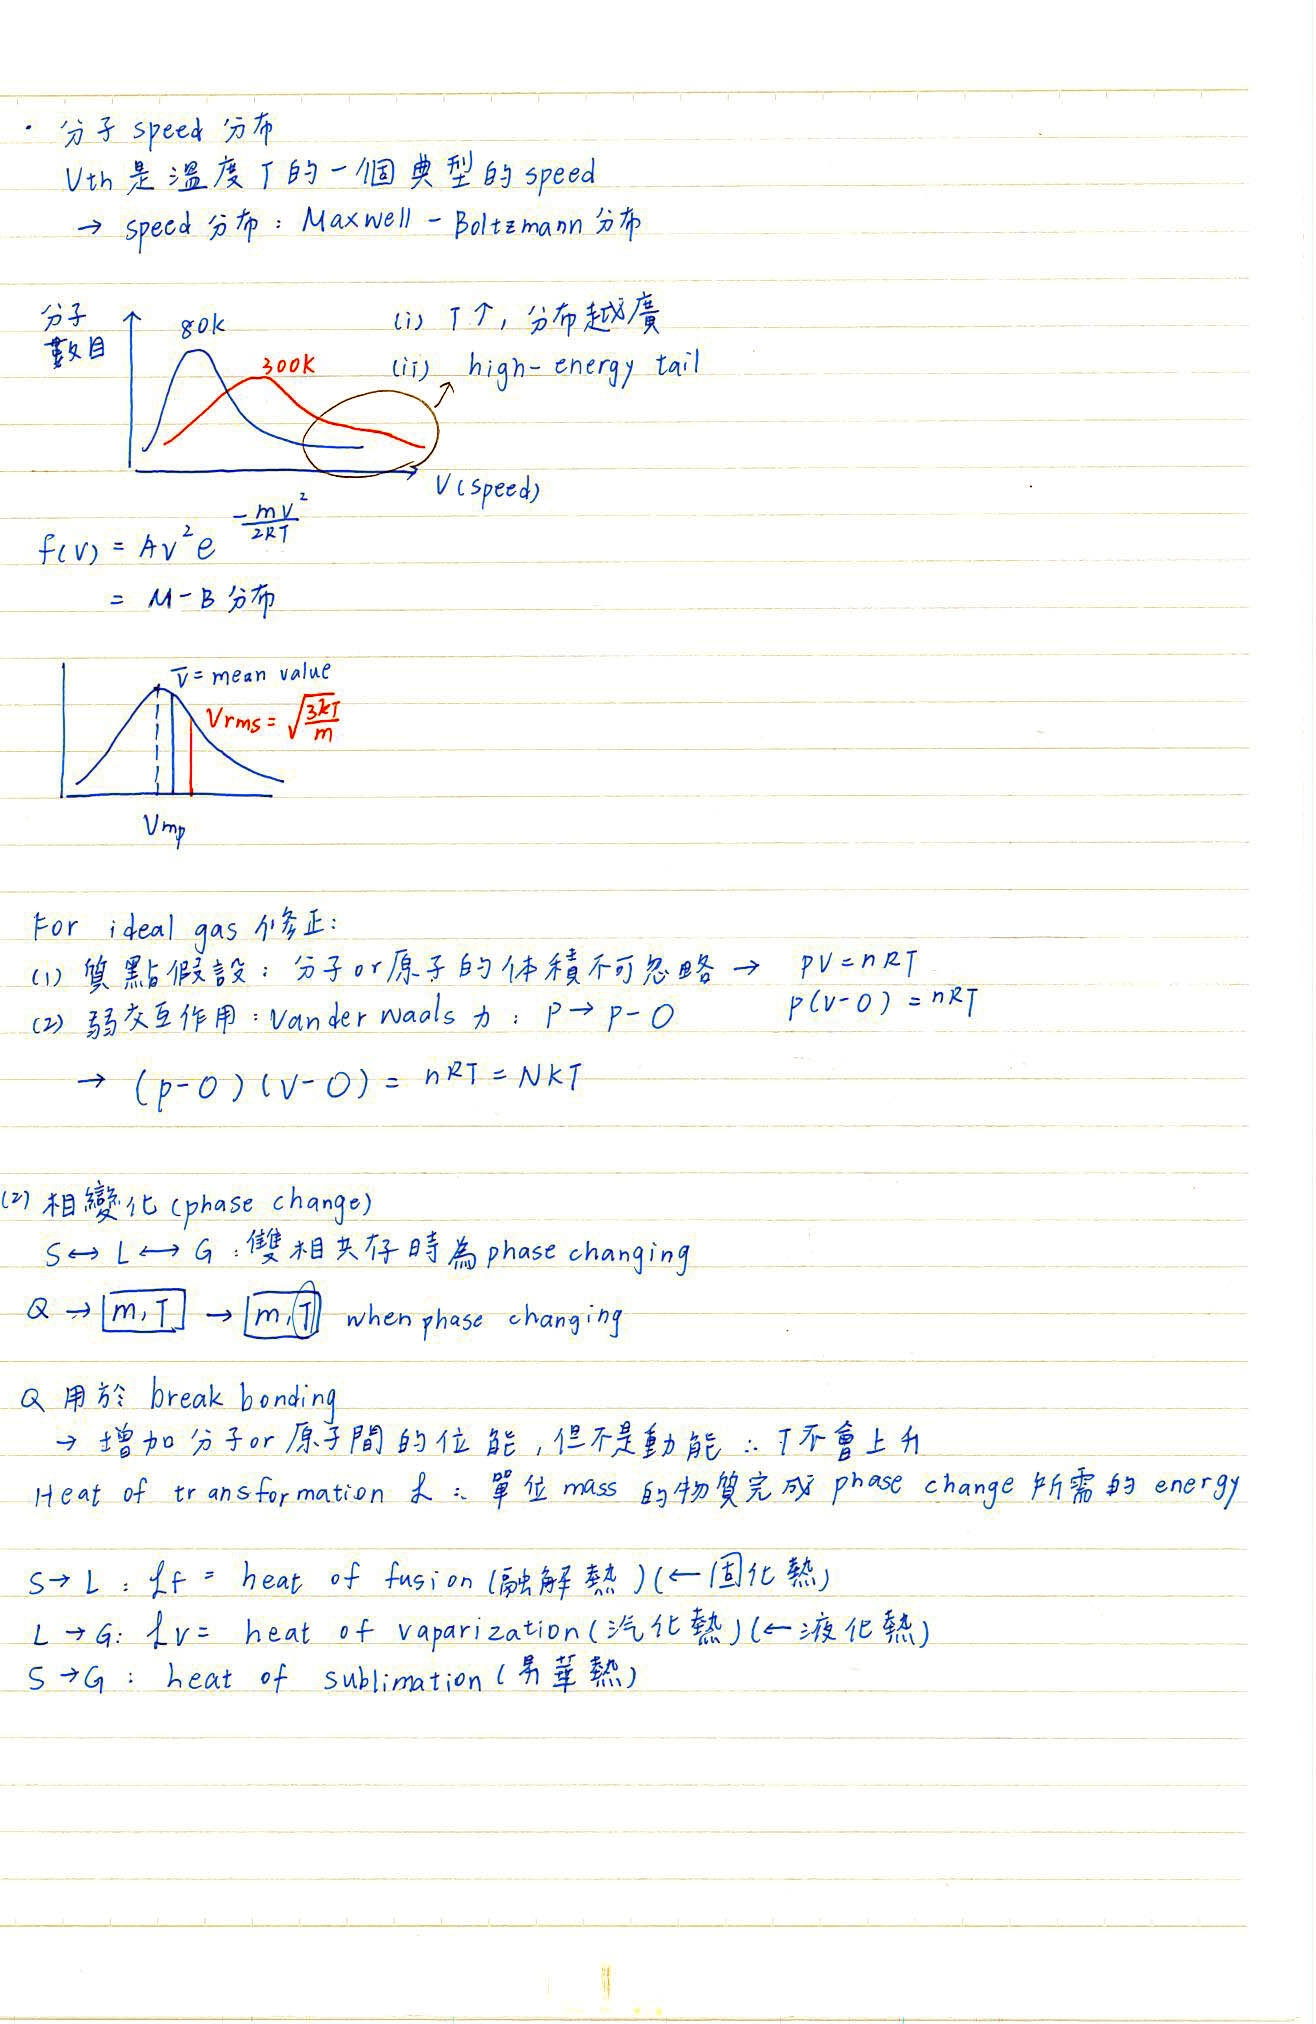 · 分子 speed 分布
Vth 是溫度 T 的一個典型的 speed
→ speed 分布：Maxwell - Boltzmann 分布
分子
數目
80K
300K
(i) T↑, 分布越廣
(ii) high-energy tail
V (speed)
f(v) = Av² e^(-mv²/2RT)
= M-B 分布
v̅ = mean value
Vrms = √(3kT/m)
Vmp
For ideal gas 修正:
(1) 質點假設：分子 or 原子的体積不可忽略 → PV = nRT
p(v-O) = nRT
(2) 弱交互作用：Vander Waals 力：P → P-O
→ (p-O)(v-O) = nRT = NKT
(2) 相變化 (phase change)
S ↔ L ↔ G : 雙相共存時為 phase changing
Q → m, T → m, T when phase changing
Q 用於 break bonding
→ 增加分子 or 原子間的位能, 但不是動能 ∴ T不會上升
Heat of transformation L : 單位 mass 的物質完成 phase change 所需的 energy
S → L : Lf = heat of fusion (融解熱) (← 固化熱)
L → G : Lv = heat of vaparization (汽化熱) (← 液化熱)
S → G : heat of sublimation (昇華熱)